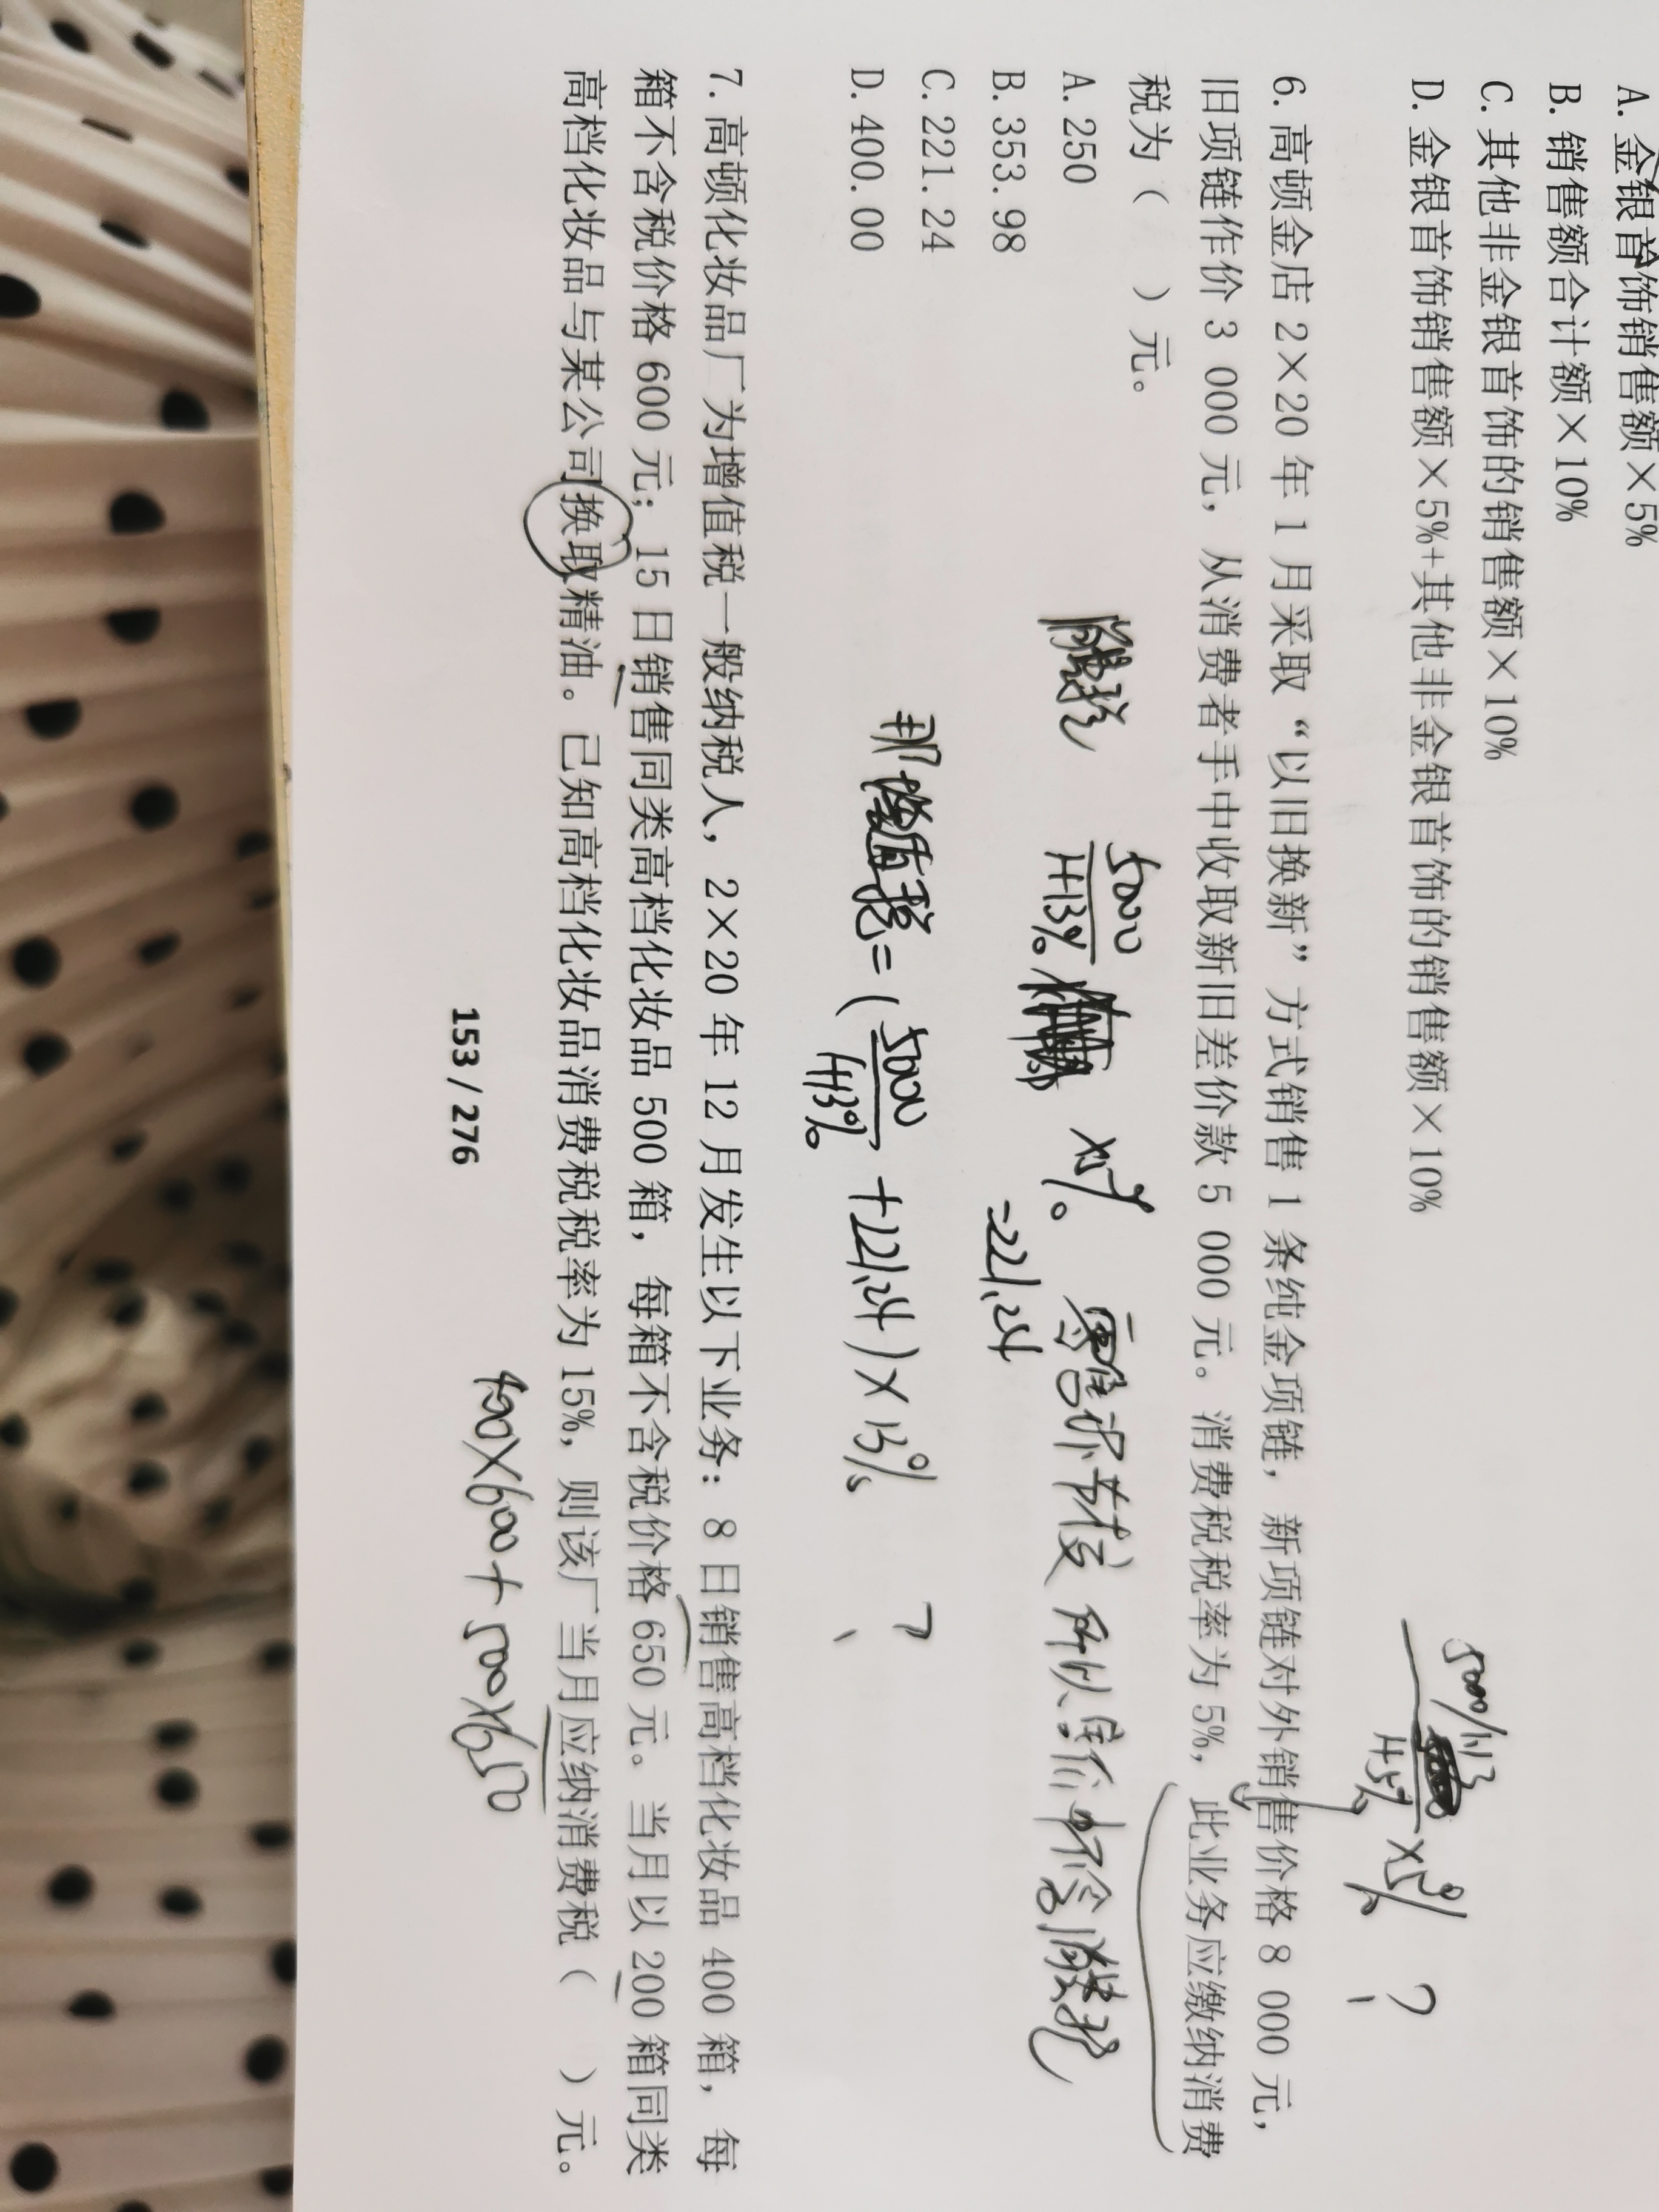 A. 金银首饰销售额×5%
B. 销售额合计额×10%
C. 其他非金银首饰的销售额×10%
D. 金银首饰销售额×5%+其他非金银首饰的销售额×10%
5000/1.13
1+5%
×5% ?
6. 高顿金店 2×20 年 1 月采取“以旧换新”方式销售 1 条纯金项链，新项链对外销售价格 8 000 元，
旧项链作价 3 000 元，从消费者手中收取新旧差价款 5 000 元。消费税税率为 5%，此业务应缴纳消费
税为（ ）元。
A. 250
B. 353.98
C. 221.24
D. 400.00
消费税 5000
1+13% ×5% 零售环节 所以售价中不含消费税
=221.24
那增值税=(5000
1+13% +221.24)×13% ?
7. 高顿化妆品厂为增值税一般纳税人，2×20 年 12 月发生以下业务：8 日销售高档化妆品 400 箱，每
箱不含税价格 600 元；15 日销售同类高档化妆品 500 箱，每箱不含税价格 650 元。当月以 200 箱同类
高档化妆品与某公司换取精油。已知高档化妆品消费税税率为 15%，则该厂当月应纳消费税（ ）元。
400×600+500×650
153 / 276